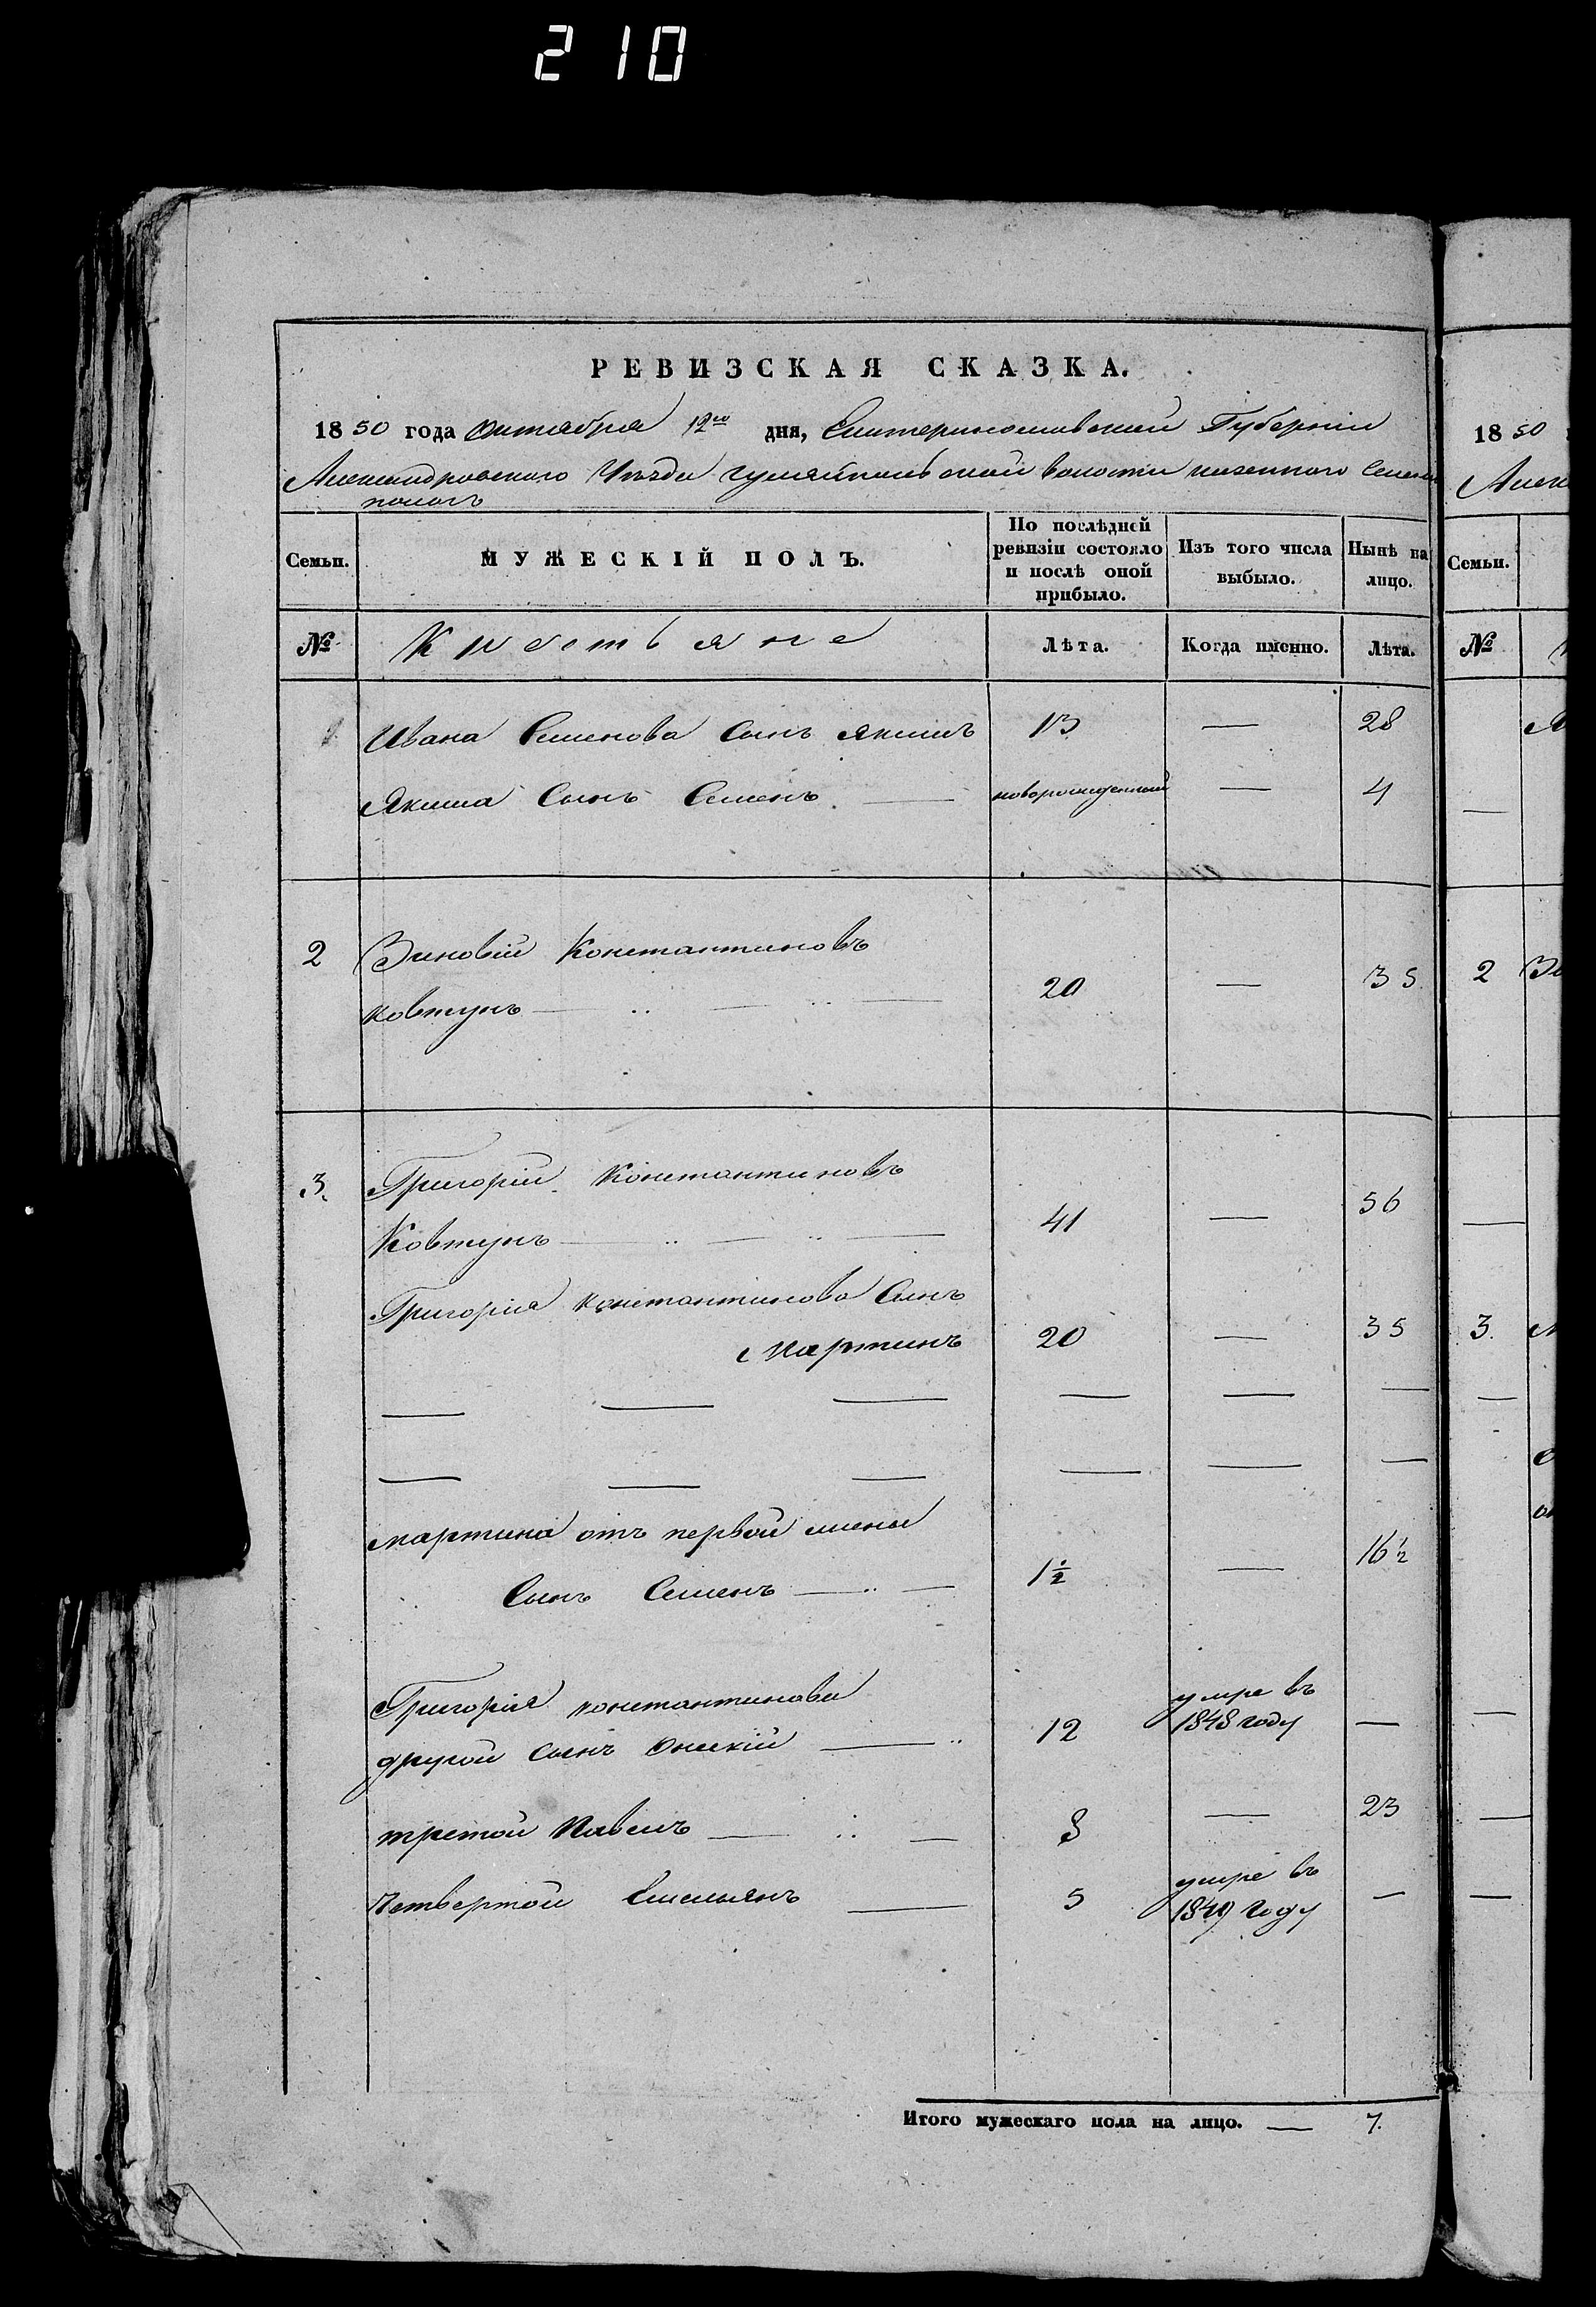 210
РЕВИЗСКАЯ СКАЗКА.
1850 года Октября 12го дня, Екатеринославской Губерніи
Александровского Уѣзда гуляйпольской волости казенного Селенія
Семьи. МУЖЕСКІЙ ПОЛЪ. По послѣдней ревизіи состояло и послѣ оной прибыло. Изъ того числа выбыло. Нынѣ на лицо.
№ Крестьяне Лѣта. Когда именно. Лѣта.
1 Ивана Семенова Сынъ Якимъ 13 — 28
Якима Сынъ Семенъ — новорожденный — 4
2 Зиновій Константиновъ
Ковтунъ — 20 — 35
3. Григорій Константиновъ
Ковтунъ — 41 — 56
Григорія Константинова Сынъ
Мартинъ 20 — 35
— — — — — —
— — — — — —
Мартина отъ первой жены
Сынъ Семенъ — 1½ — 16½
Григорія Константинова
другой Сынъ 12 умре въ 1848 году —
третой Павелъ — 8 — 23
Четвертой Емельянъ — 5 умре въ 1849 году —
Итого мужескаго пола на лицо. — 7.
1850
Семьи.
№
—
2
—
3.
—
—
—
—